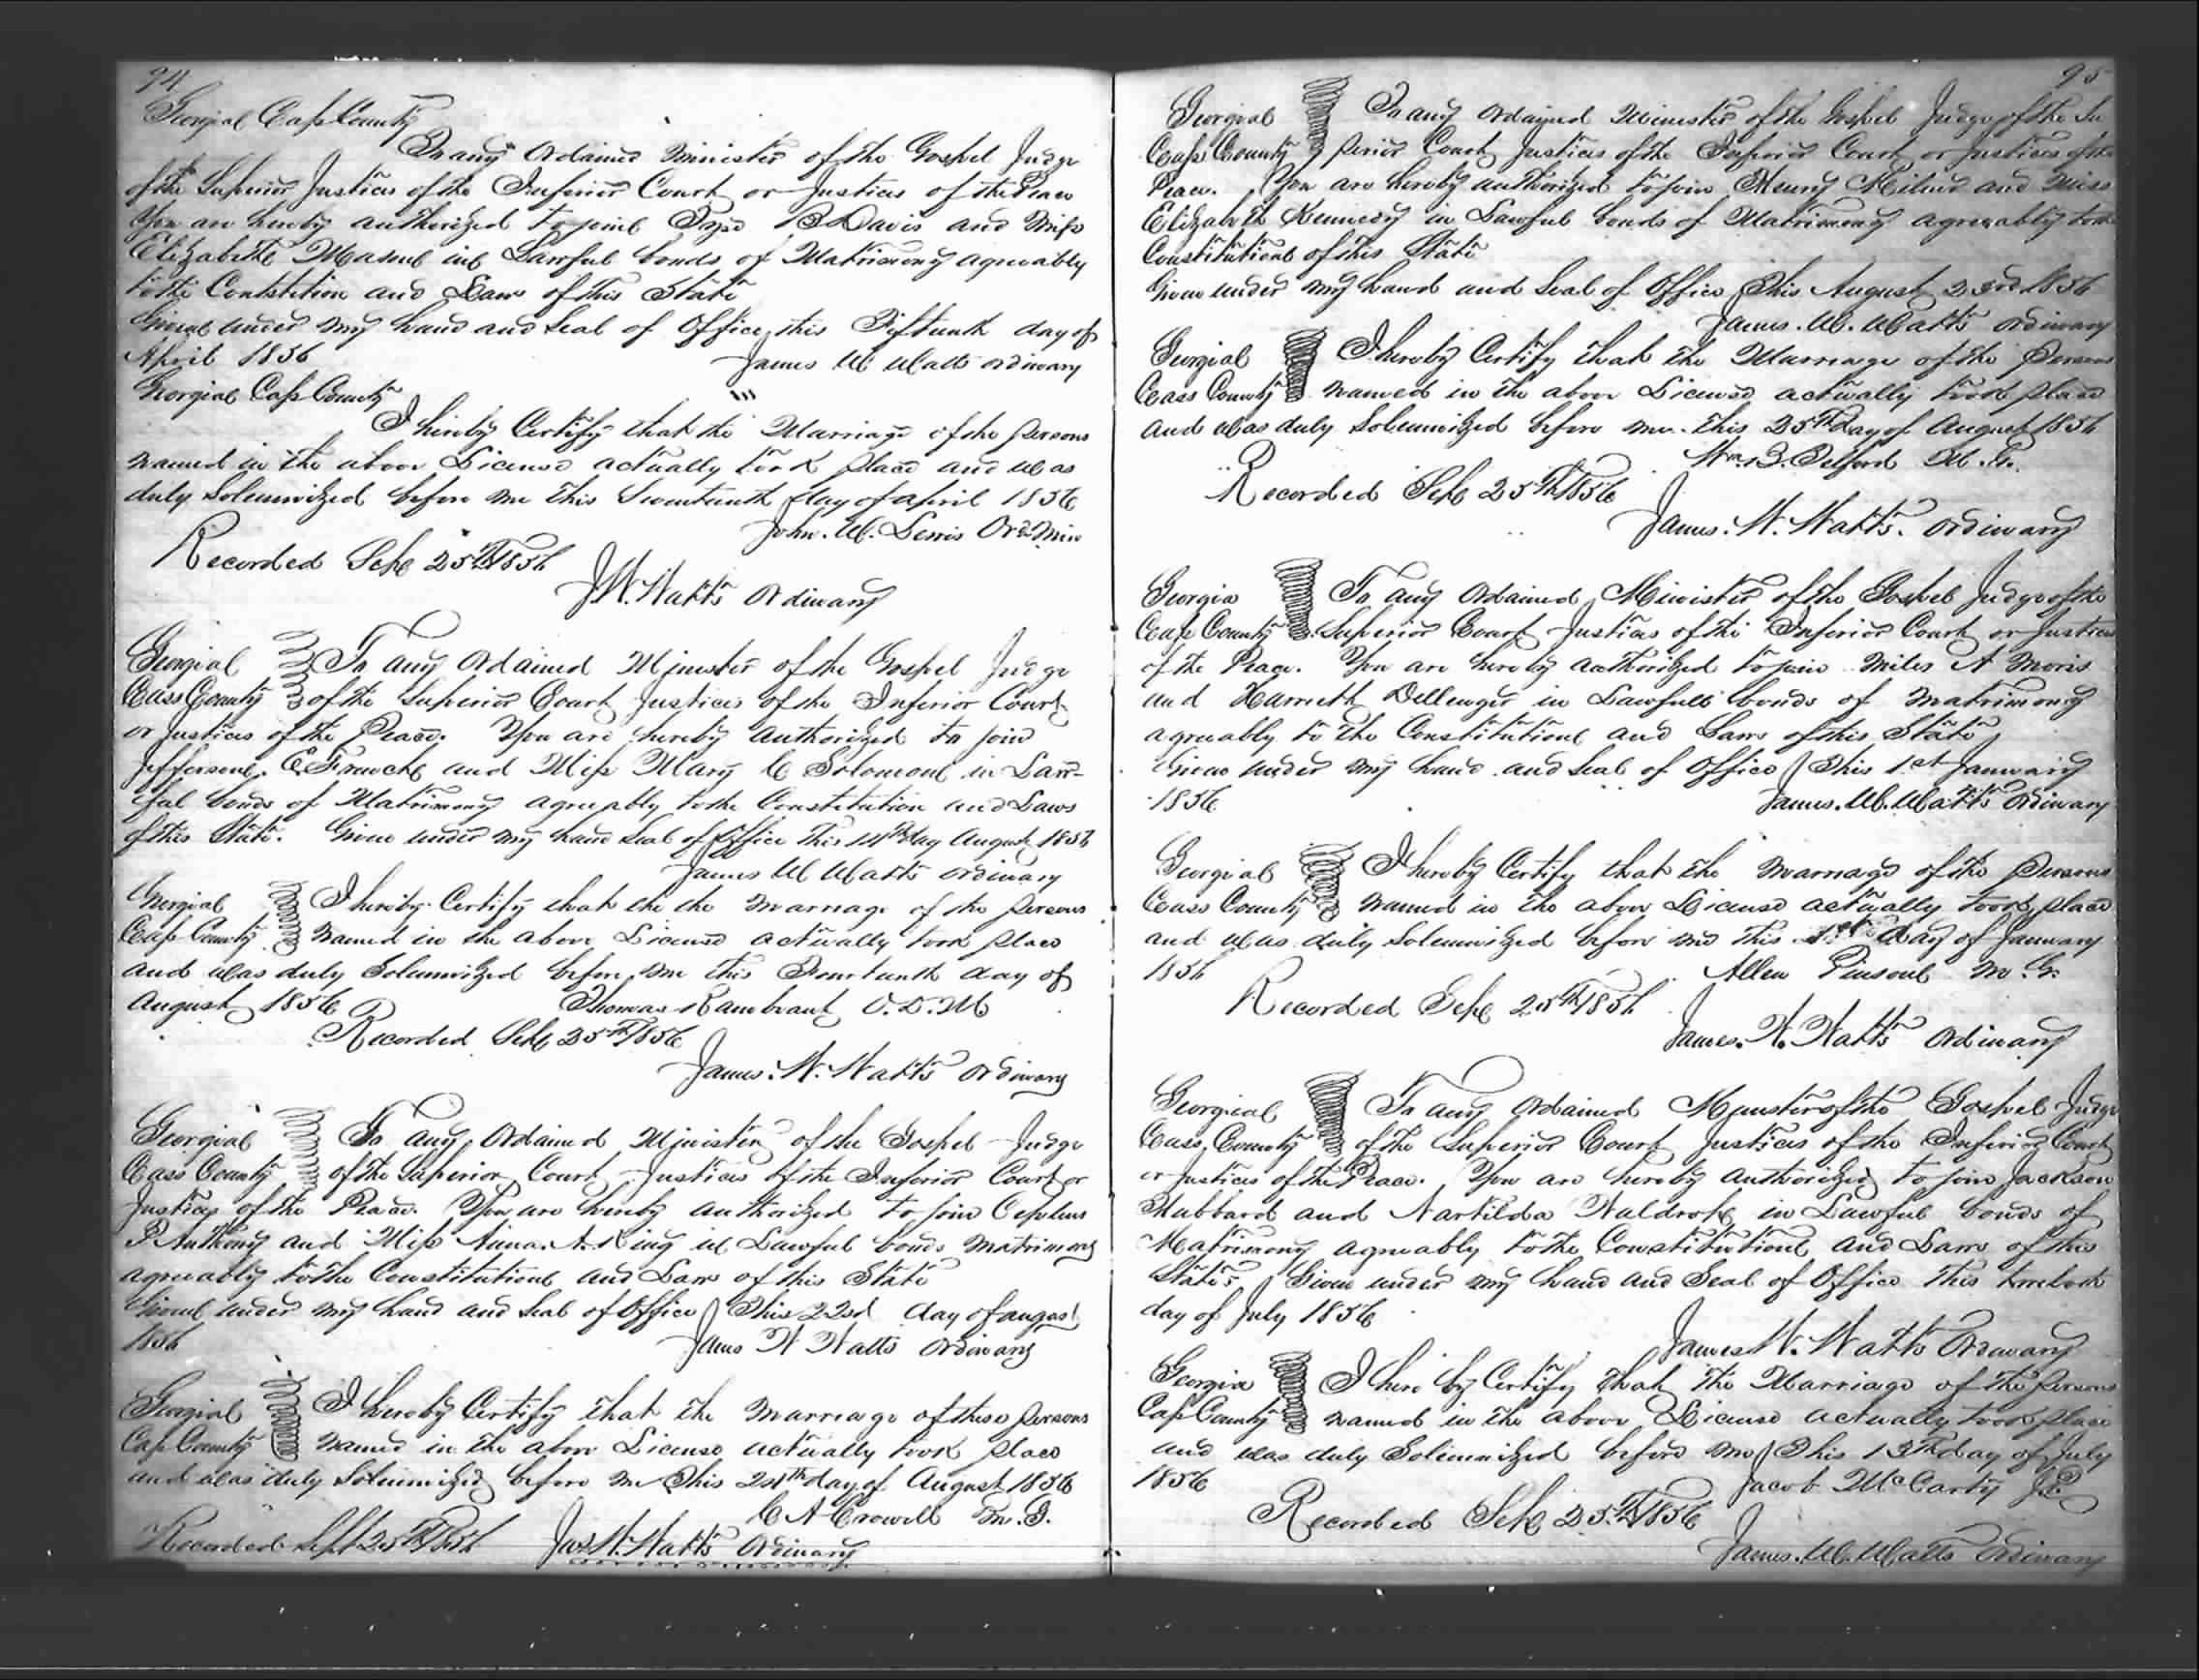 94
Georgia Cass County
To any Ordained Minister of the Gospel Judge
of the Superior Justices of the Inferior Court or Justices of the Peace
You are hereby authorized to joine B Davis and Miss
Elizabeth in Lawful bonds of Matrimony agreeably
to the Contstitution and Laws of this State
Given under my hand and Seal of Office this Fifteenth day of
April 1856 James W Watts ordinary
Georgia Cass County
I hereby Certify that the Marriage of the persons
named in the above License actually took place and was
duly Solemnized before me this Seventeenth day of April 1856
John. W. Lewis Ord Min
Recorded Sept 25th 1856
J. W. Watts Ordinary
Georgia To any Ordained Minister of the Gospel Judge
Cass County of the Superior Court Justices of the Inferior Court
or Justices of the Peace. You are hereby authorized to join
Jefferson. C. and Miss Mary C Solomon in Law-
ful bonds of Matrimony agreeably to the Constitution and Laws
of this State. Given under my hand Seal of Office this 14th day August 1856
James W Watts ordinary
Georgia I hereby Certify that the the marriage of the persons
Cass County named in the above License actually took place
and was duly Solemnized before me this Fourteenth day of
August 1856 Thomas Rambaut O. D. M
Recorded Sept 25th 1856
James. W. Watts Ordinary
Georgia To any Ordained Minister of the Gospel Judge
Cass County of the Superior Court Justices of the Inferior Court or
Justices of the Peace. You are hereby authorized to join Cephus
P Anthony and Miss Anna. A. King in Lawful bonds Matrimony
agreeably to the Constitution and Laws of this State
Given under my hand and Seal of Office This 22nd day of august
1856 James W Watts Ordinary
Georgia I hereby Certify that the marriage of these persons
Cass County named in the above License actually took place
and was duly Solemnized before me This 24th day of August 1856
C A Crowell M. G.
Recorded Sept 25th 1856 Jas W. Watts Ordinary
95
Georgia To any Ordained Minister of the Gospel Judge of the Su
Cass County perior Court Justices of the Inferior Court or Justices of the
Peace. You are hereby authorized to join Henry and Miss
Elizabeth Kennedy in Lawful bonds of Matrimony agreeably to the
Constitution of this State
Given under my hand and Seal of Office This August 23rd 1856
James. W. Watts Ordinary
Georgia I hereby Certify that the Marriage of the persons
Cass County named in the above License actually took place
and was duly Solemnized before me. this 25th day of August 1856
Wm. B. Telford M. G.
Recorded Sept 25th 1856
James. W. Watts. Ordinary
Georgia To any Ordained Minister of the Gospel Judge of the
Cass County Superior Court Justices of the Inferior Court or Justices
of the Peace. You are hereby authorized to join Miles A Moris
and Harriett Dellenger in Lawfull bonds of matrimony
agreeably to the Constitution and Laws of this State
Given under my hand and Seal of Office This 1st January
1856 James. W. Watts Ordinary
Georgia I hereby Certify that the marriage of the persons
Cass County named in the above License actually took place
and was duly Solemnized before me this 1st day of January
1856 Allen Pinson M. G.
Recorded Sept 25th 1856
James. W. Watts Ordinary
Georgia To any Ordained Minister of the Gospel Judge
Cass County of the Superior Court Justices of the Inferior Court
or Justices of the Peace. You are hereby authorized to join Jackson
Hubbard and Nartilda Waldrop in Lawful bonds of
Matrimony agreeably to the Constitution and Laws of this
State Given under my hand and Seal of Office This twelvth
day of July 1856
James W. Watts Ordinary
Georgia I here by Certify that the Marriage of the persons
Cass County named in the above License actually took place
and was duly Solemnized before me This 13th day of July
1856 Jacob McCarty J.P.
Recorded Sept 25th 1856
James. W. Watts Ordinary